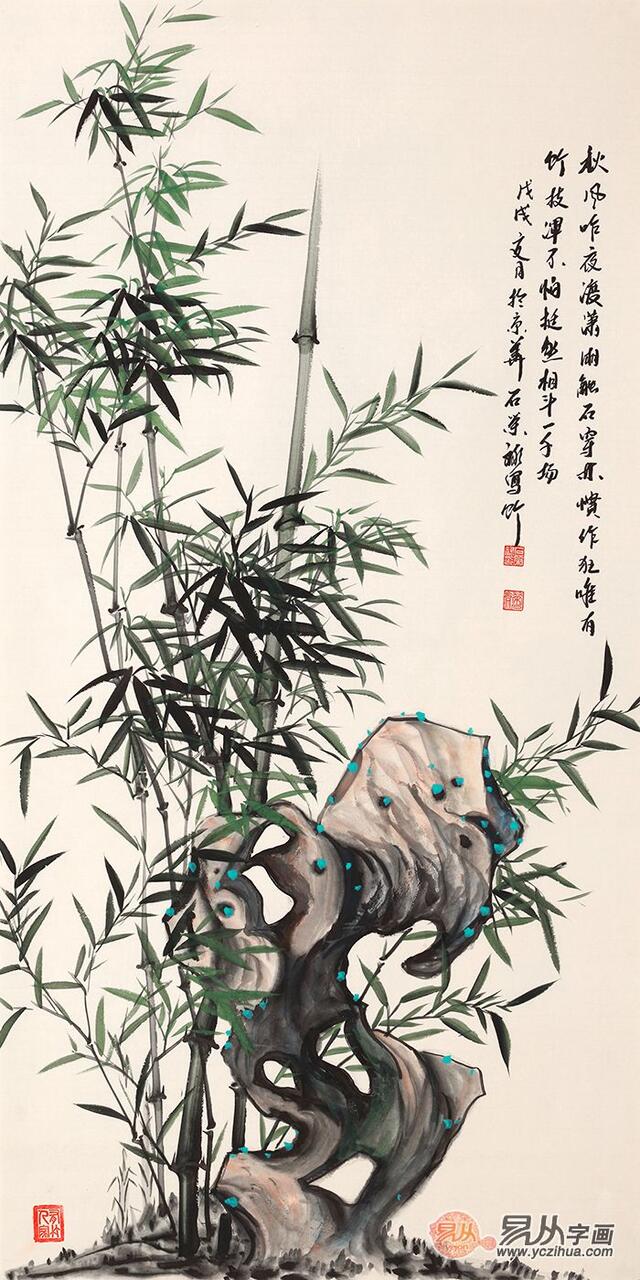 秋风昨夜渡潇湘触石穿林惯作狂唯有
竹枝浑不怕挺然相斗一千场
戊戌夏月於京华石荣禄写竹
易从字画
www.yczihua.com